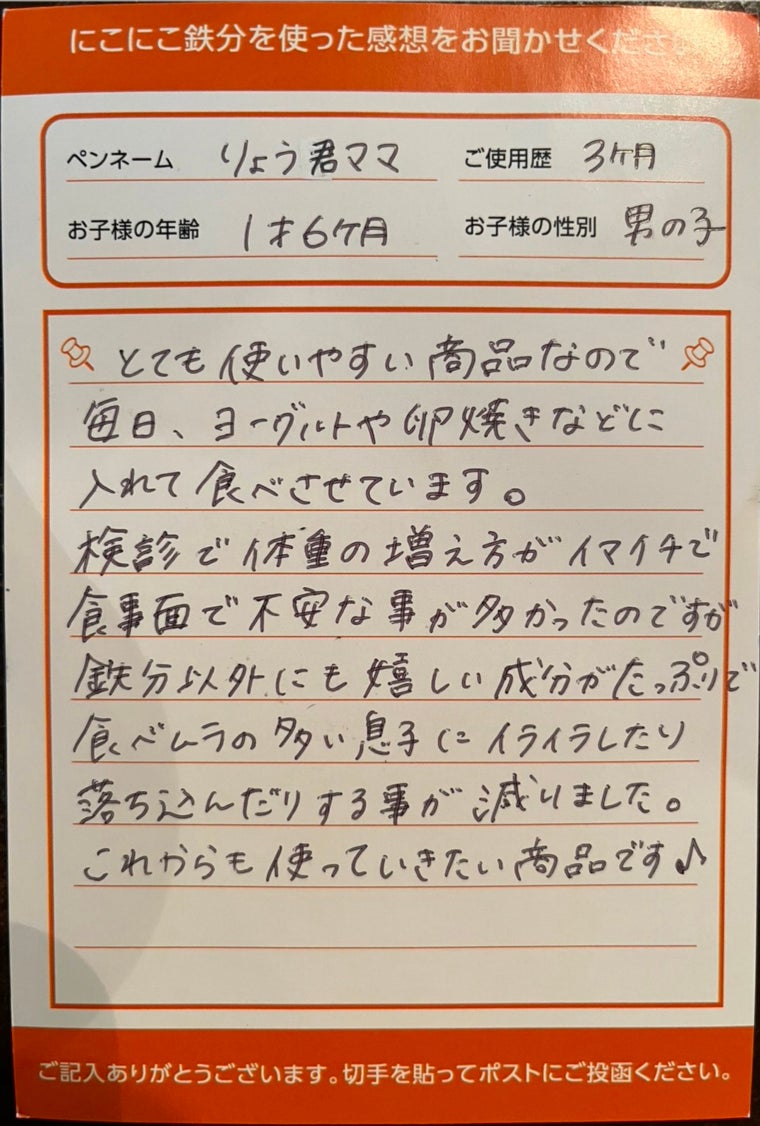 にこにこ鉄分を使った感想をお聞かせください
ペンネーム りょう君ママ ご使用歴 3ヶ月
お子様の年齢 1才6ヶ月 お子様の性別 男の子
とても使いやすい商品なので
毎日、ヨーグルトや卵焼きなどに
入れて食べさせています。
検診で体重の増え方がイマイチで
食事面で不安な事が多かったのですが
鉄分以外にも嬉しい成分がたっぷりで
食べムラの多い息子にイライラしたり
落ち込んだりする事が減りました。
これからも使っていきたい商品です♪
ご記入ありがとうございます。切手を貼ってポストにご投函ください。